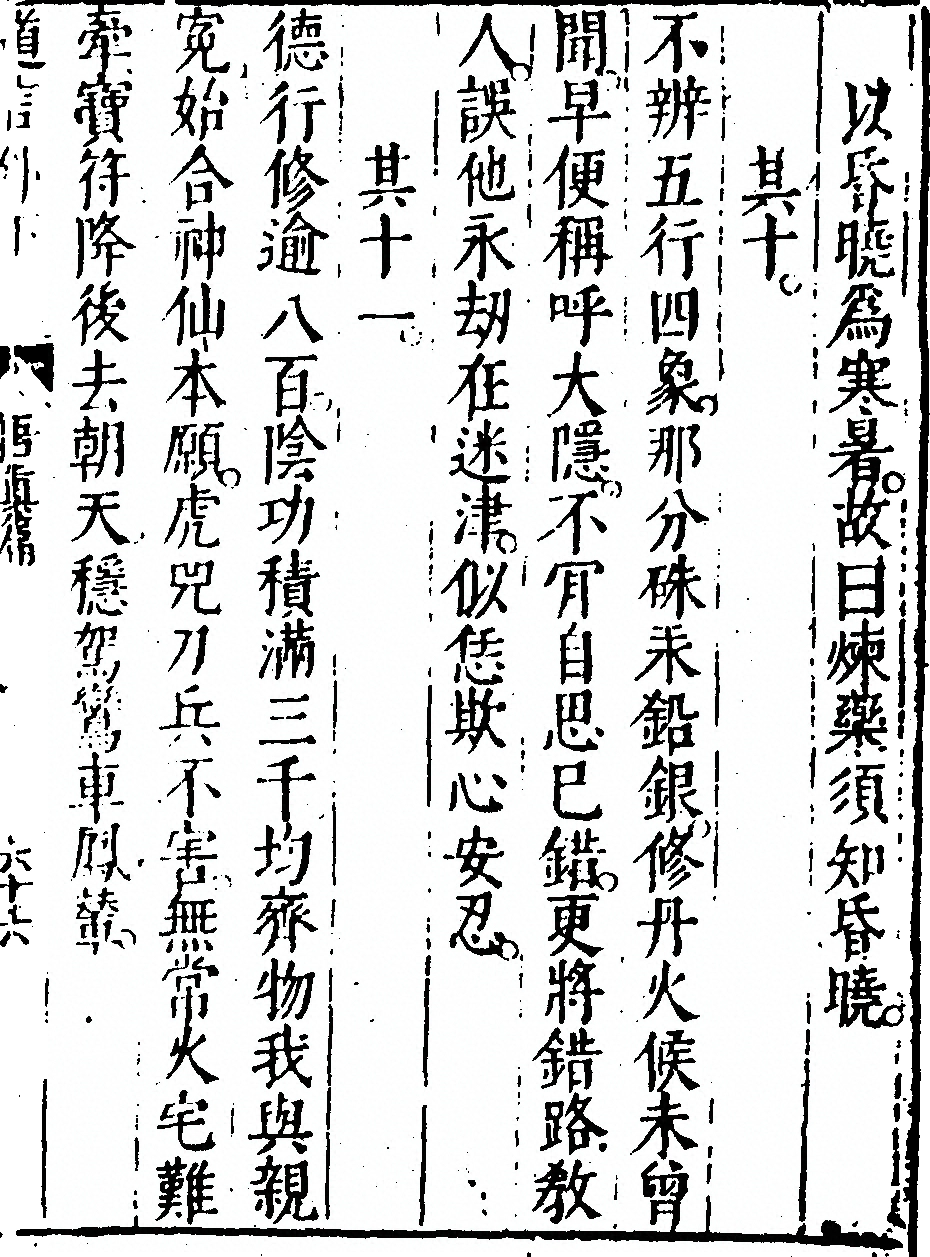 以昏曉爲寒暑。故曰煉藥須知昏曉。
其十。
不辨五行四象。那分硃汞鉛銀。修丹火候未曾
聞。早便稱呼大隱。不肎自思巳錯。更將錯路教
人。誤他永刼在迷津。似恁欺心安忍。
其十一。
德行修逾八百。陰功積滿三千。均齊物我與親
寃。始合神仙本願。虎兕刀兵不害。無常火宅難
牽。寶符降後去朝天。穩駕鸞車鳳輦。
道言外
悟眞篇
六十六